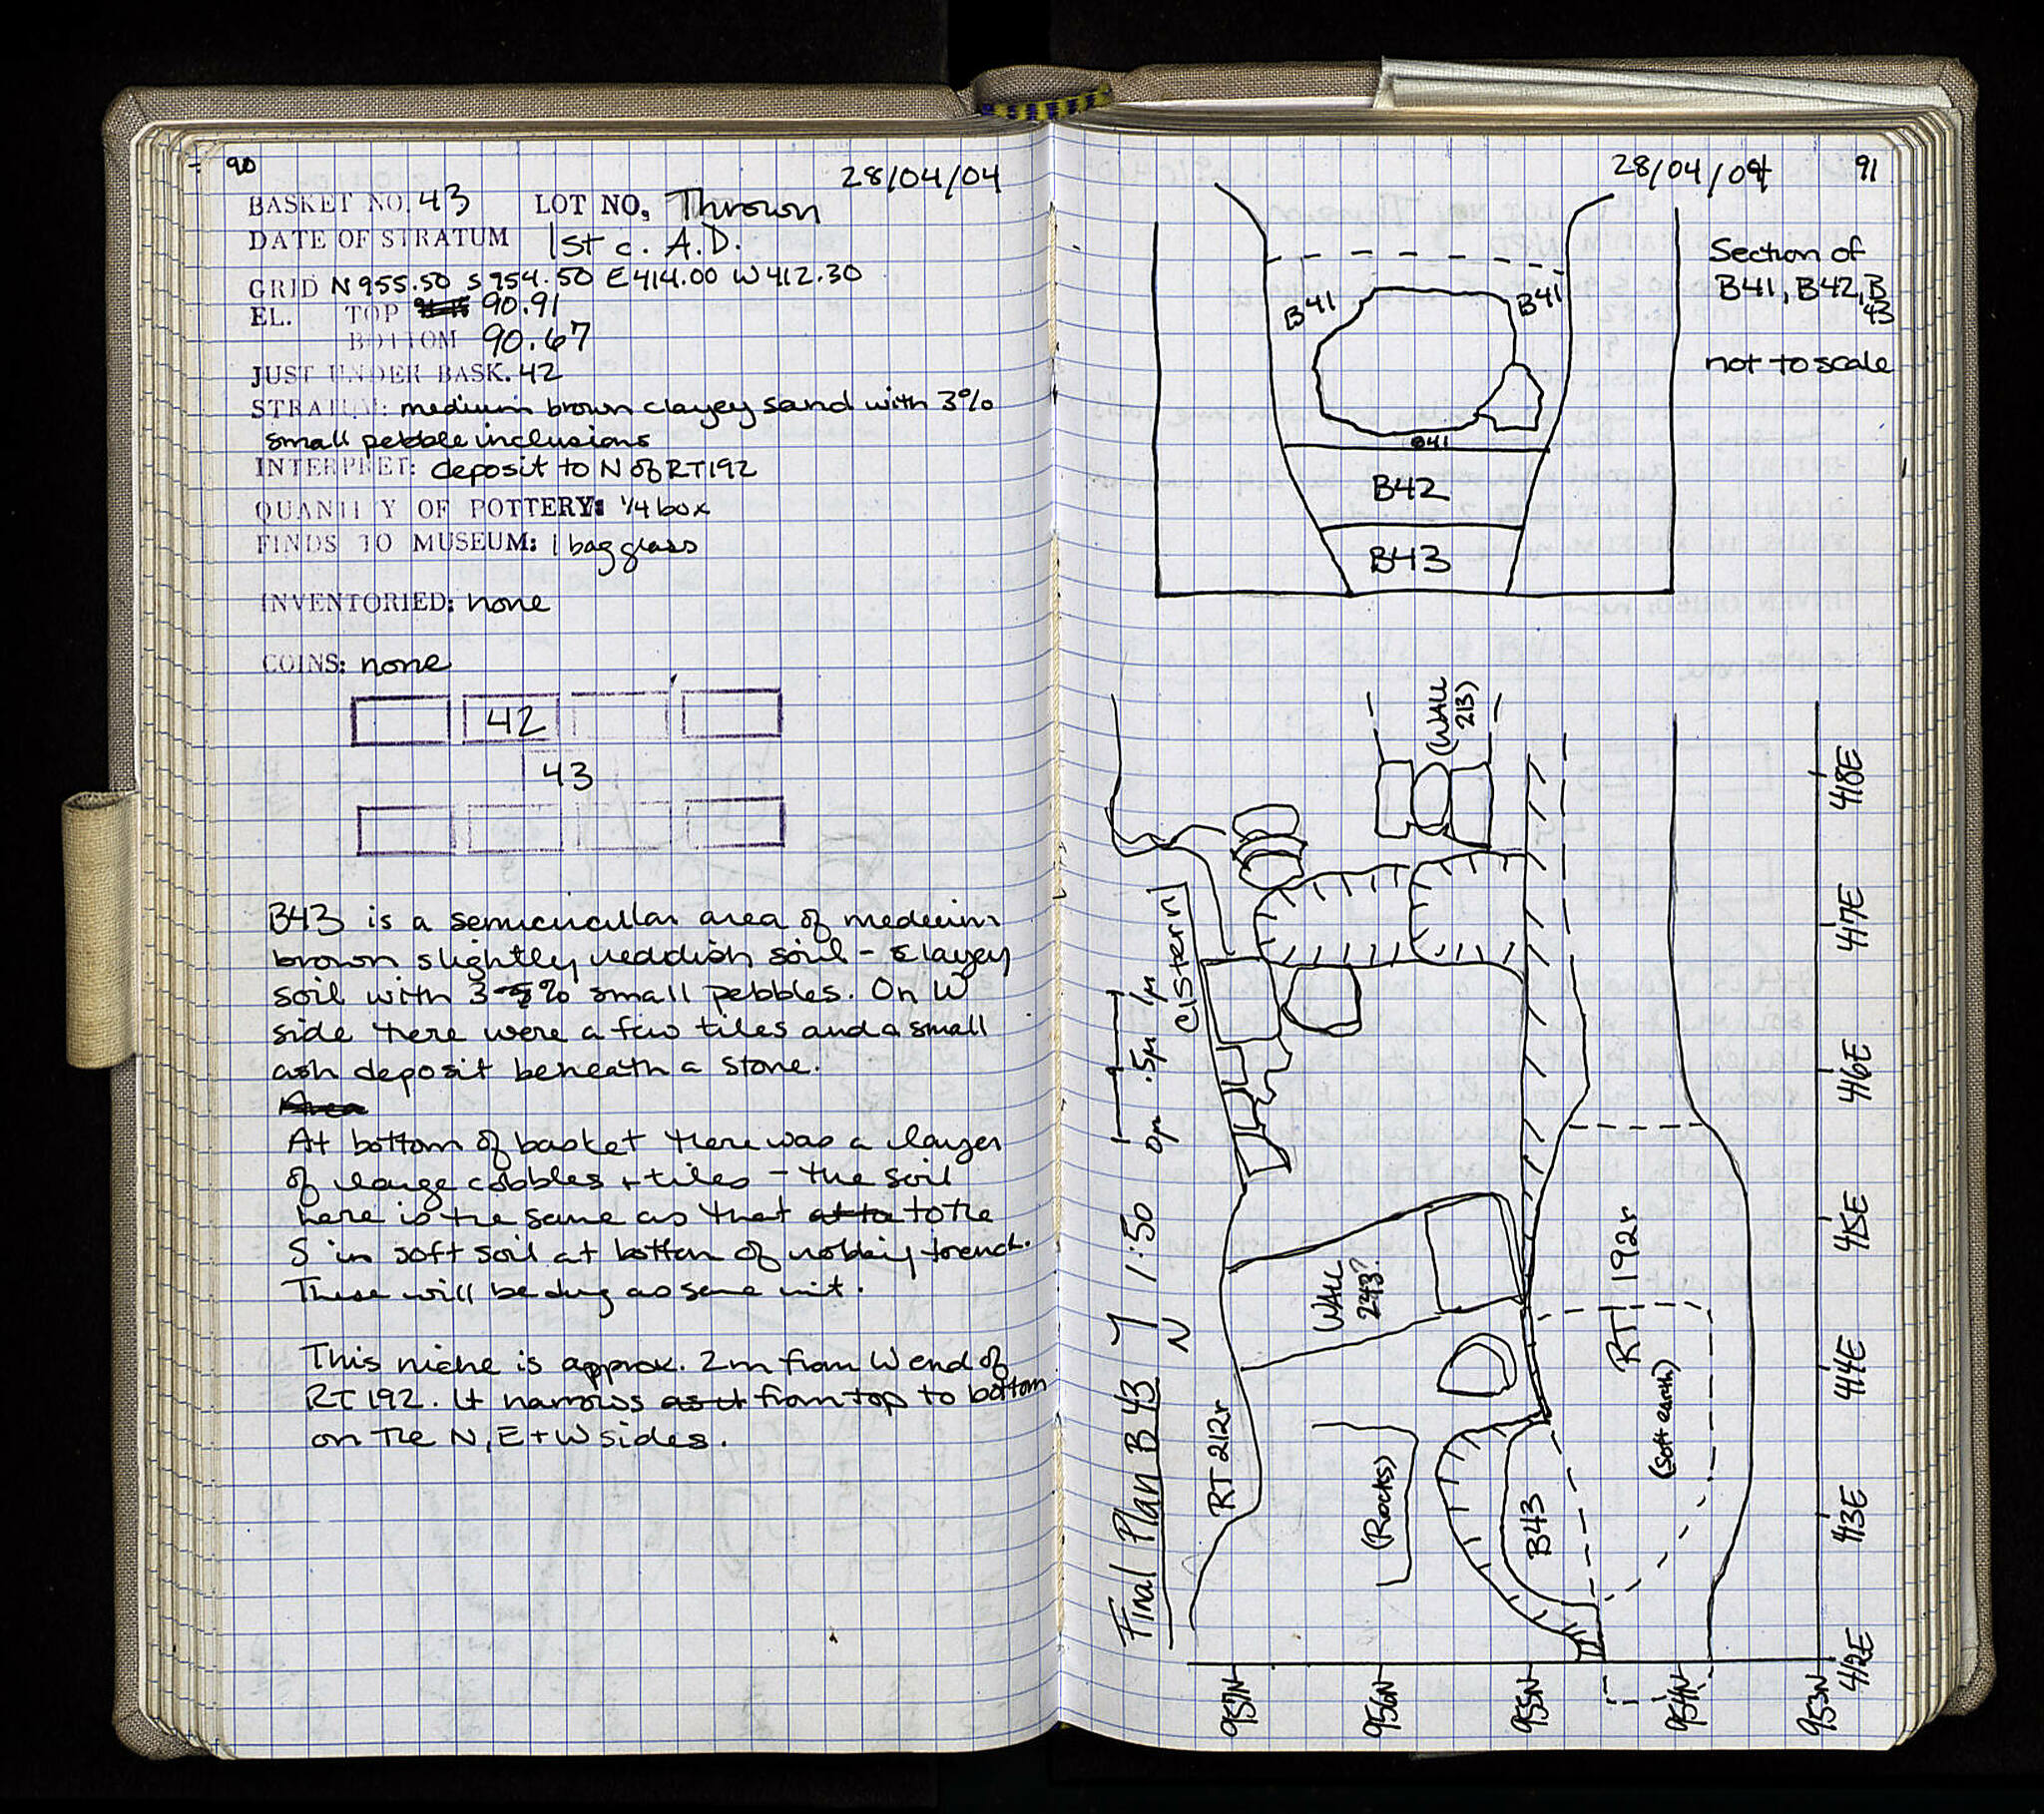 90
28/04/04
BASKET NO. 43 LOT NO, Thrown
DATE OF STRATUM 1st c. A.D.
GRID N955.50 S954.50 E414.00 W412.30
EL. TOP 90.91
BOTTOM 90.67
JUST UNDER BASK. 42
STRATUM: medium brown clayey sand with 3%
small pebble inclusions
INTERPRET: deposit to N of RT192
QUANTITY OF POTTERY: 1/4 box
FINDS TO MUSEUM: 1 bag glass
INVENTORIED: none
COINS: none
42
43
B43 is a semicircular area of medium
brown slightly reddish soil - clayey
soil with 3-5% small pebbles. On W
side there were a few tiles and a small
ash deposit beneath a stone.
Area
At bottom of basket there was a layer
of large cobbles + tiles - the soil
here is the same as that at to to the
S in soft soil at bottom of robbing trench.
These will be dug as same unit.
This niche is approx. 2m from W end of
RT 192. It narrows as it from top to bottom
on the N, E + W sides.
28/04/04
91
Section of
B41, B42, B
43
not to scale
B41
B41
B41
B42
B43
Final Plan B43
N
1:50
0m .5m 1m
Cistern
(WALL
213)
WALL
243?
RT 212r
(Rocks)
B43
RT 192r
(soft earth)
418E
417E
416E
415E
414E
413E
412E
957N
956N
955N
954N
953N